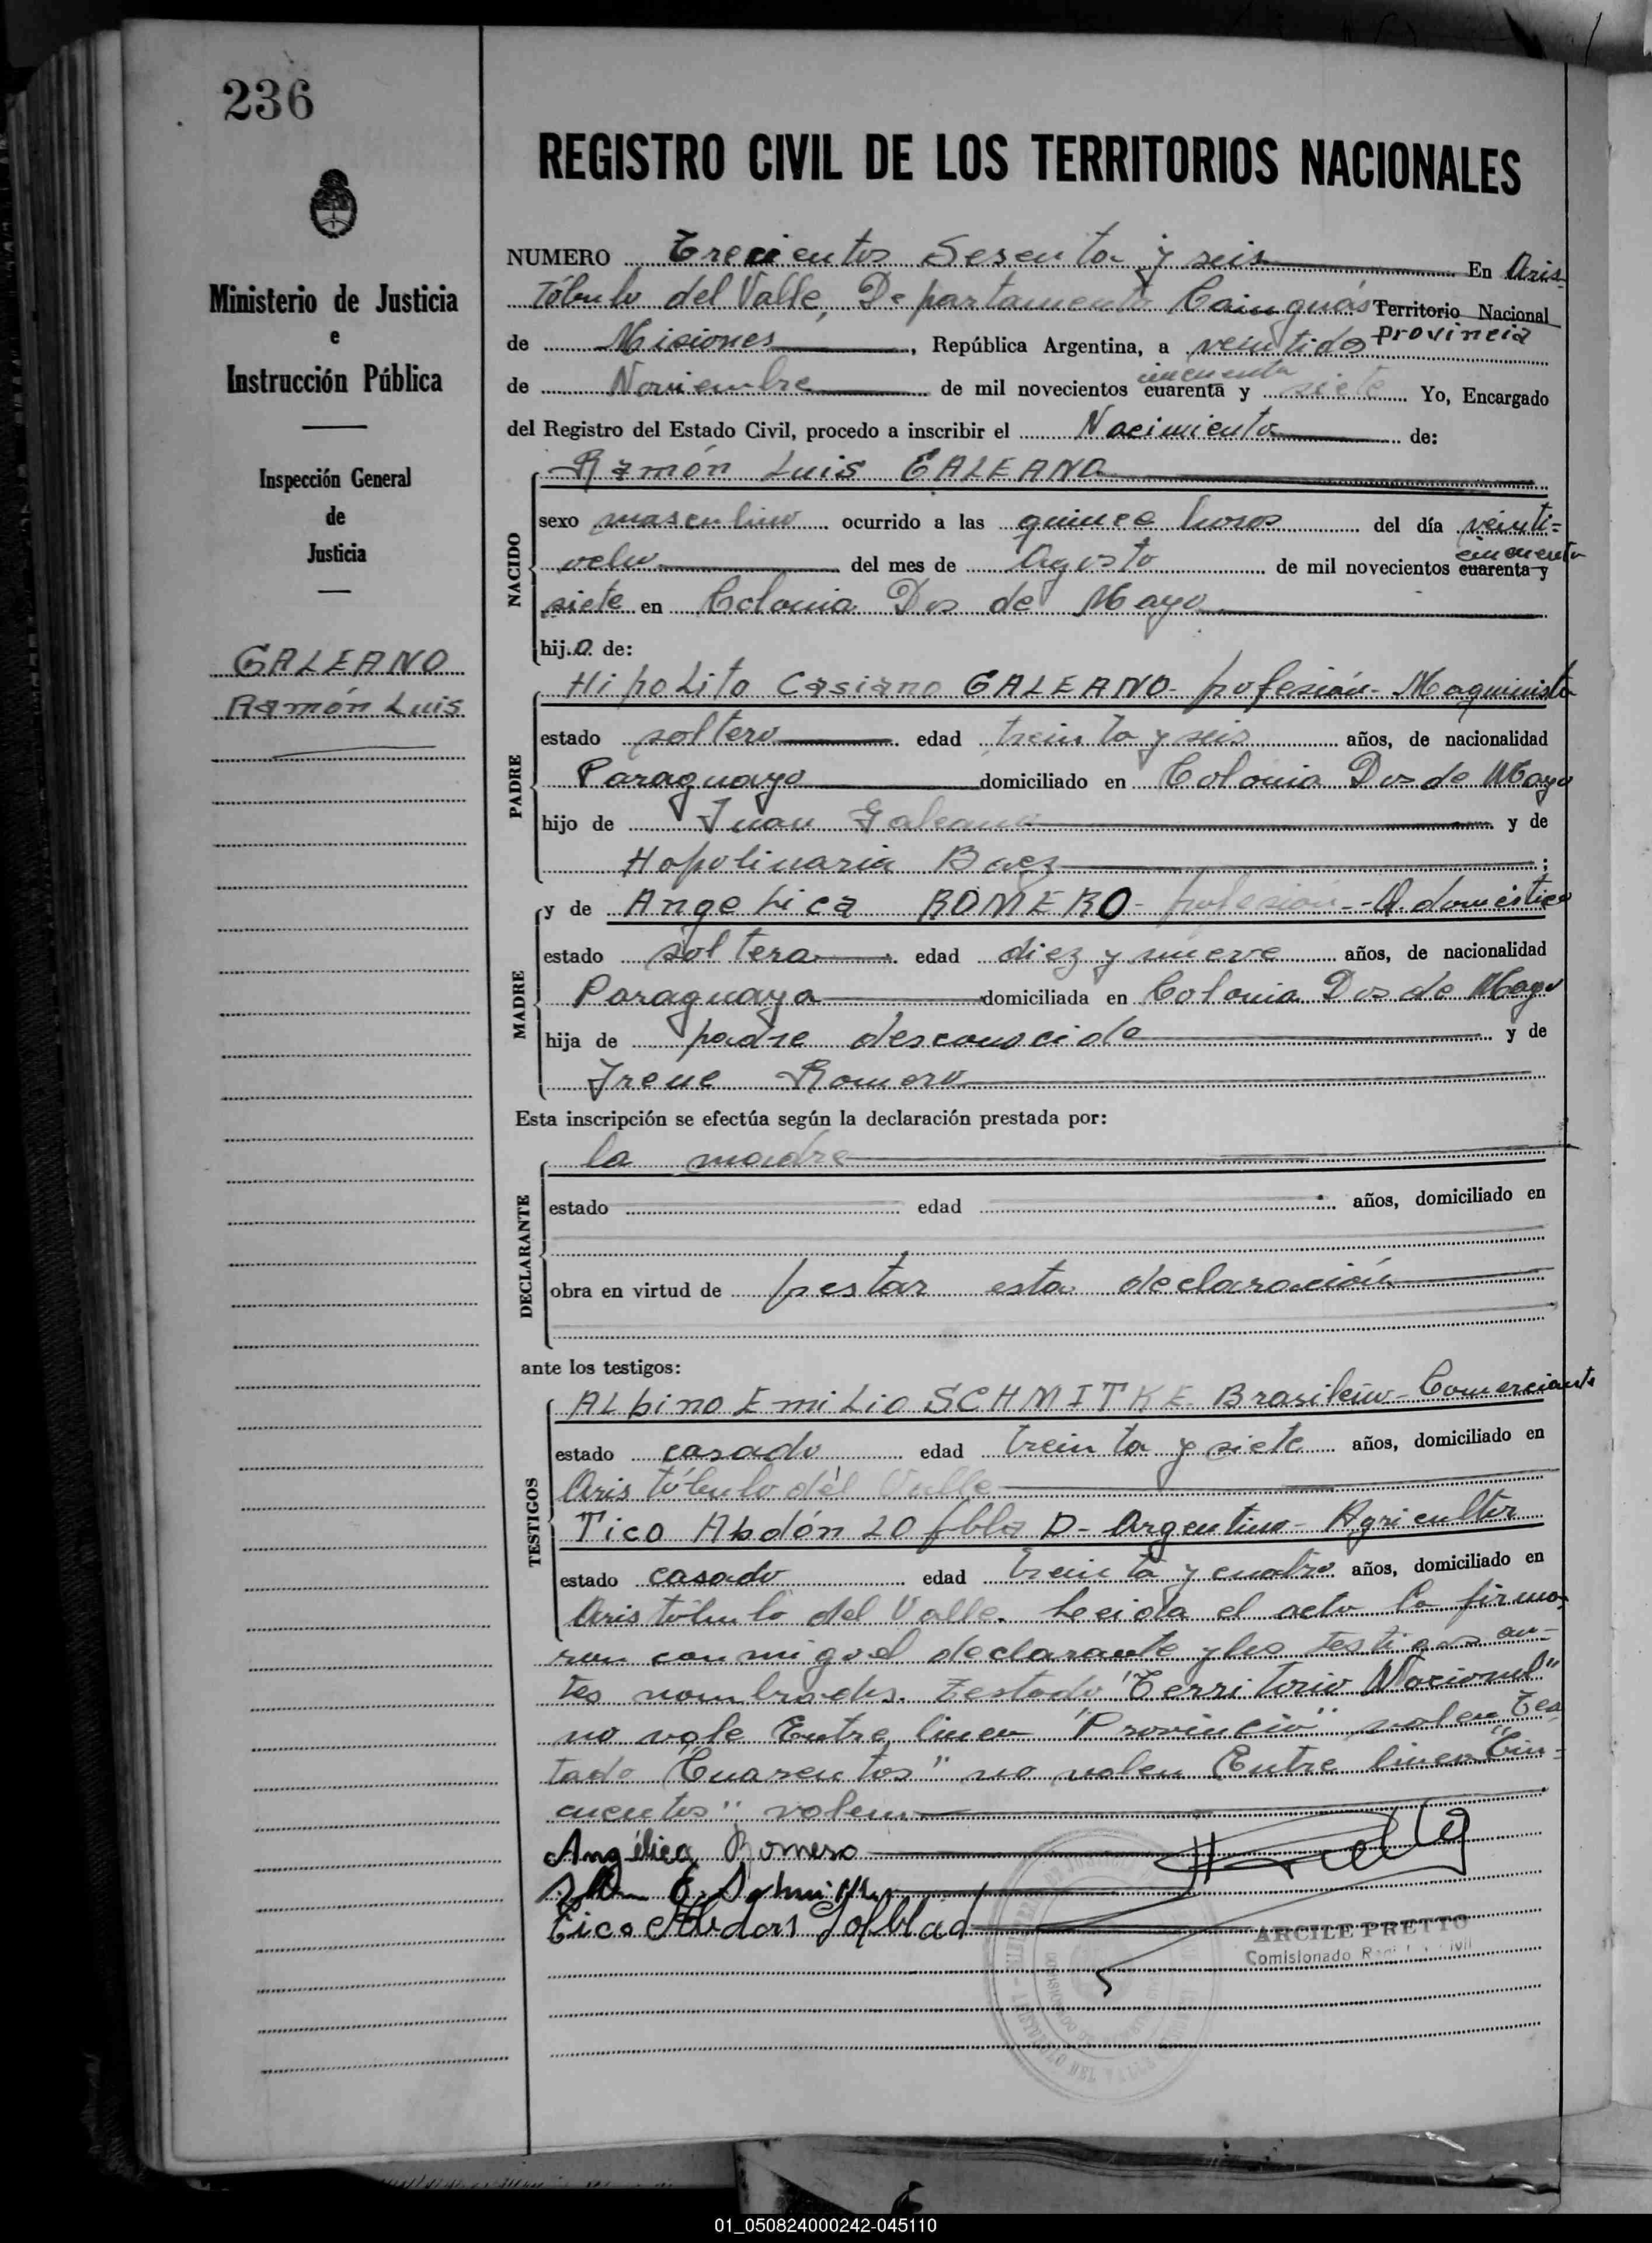 236
REGISTRO CIVIL DE LOS TERRITORIOS NACIONALES
Ministerio de Justicia
e
Instrucción Pública
Inspección General
de
Justicia
GALEANO
Ramón Luis
NUMERO Trecientos Sesenta y seis En Aris-
tóbulo del Valle, Departamento Cainguás Territorio Nacional
provincia
de Misiones, República Argentina, a veintidos
cincuenta
de Noviembre de mil novecientos cuarenta y siete Yo, Encargado
del Registro del Estado Civil, procedo a inscribir el Nacimiento de:
Ramón Luis GALEANO
NACIDO
sexo masculino ocurrido a las quince horas del día veinti=
cincuenta
ocho del mes de Agosto de mil novecientos cuarenta y
siete en Colonia Dos de Mayo
hijo de:
PADRE
Hipolito Casiano GALEANO - profesión - Maquinista
estado soltero edad treinta y seis años, de nacionalidad
Paraguayo domiciliado en Colonia Dos de Mayo
hijo de Juan Galeano y de
Hopolinaria Baez;
MADRE
y de Angelica ROMERO - profesión - Q. domestico
estado soltera edad diez y nueve años, de nacionalidad
Paraguaya domiciliada en Colonia Dos de Mayo
hija de padre desconocido y de
Irene Romero
Esta inscripción se efectúa según la declaración prestada por:
DECLARANTE
la madre
estado edad años, domiciliado en
obra en virtud de pestar esta declaración
ante los testigos:
TESTIGOS
Albino Emilio SCHMITKE Brasilero - Comerciante
estado casado edad treinta y siete años, domiciliado en
Aristóbulo del Valle
Tico Abdón LOfblaD - Argentino - Agricultor
estado casado edad treinta y cuatro años, domiciliado en
Aristóbulo del Valle. Leida el acta la firma-
ron conmigo el declarante y los testigos an-
tes nombrados. Testado "Territorio Nacional"
no vale Entre linea "Provincia" valen Tes
tado "Cuarentas" no valen Entre linea "Cin-
cuentas" valen
Angélica Romero
Tico Abdon Lofblad
ARCILE PRETTO
Comisionado Registro Civil
01_050824000242-045110